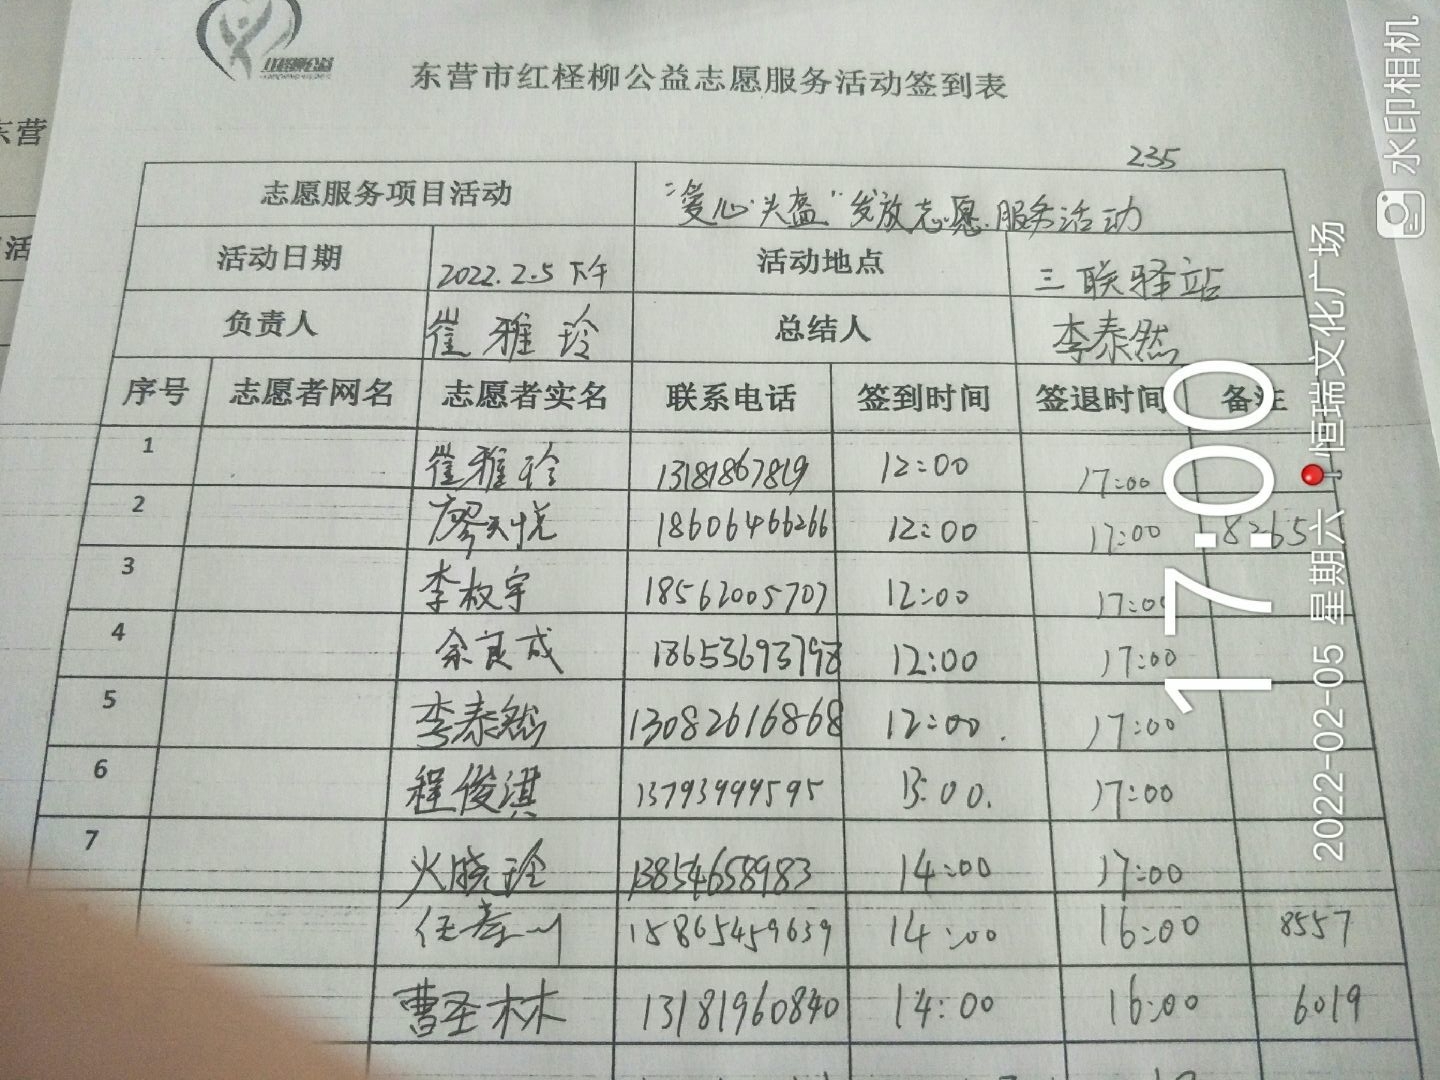 红柽柳公益
东营市红柽柳公益志愿服务活动签到表
东营
活
235
志愿服务项目活动 “爱心头盔”发放志愿服务活动
活动日期 2022.2.5下午 活动地点 三联驿站
负责人 崔雅玲 总结人 李泰然
序号 志愿者网名 志愿者实名 联系电话 签到时间 签退时间 备注
1 崔雅玲 13181867819 12:00 17:00
2 廖天悦 18606466266 12:00 17:00 8265
3 李权宇 18562005707 12:00 17:00
4 余良成 18653693798 12:00 17:00
5 李泰然 13082616868 12:00. 17:00
6 程俊淇 13793999595 13:00. 17:00
7 火晓玲 13854658983 14:00 17:00
任孝川 15865459639 14:00 16:00 8557
曹圣林 13181960840 14:00 16:00 6019
17:00
2022-02-05 星期六 恒瑞文化广场
水印相机